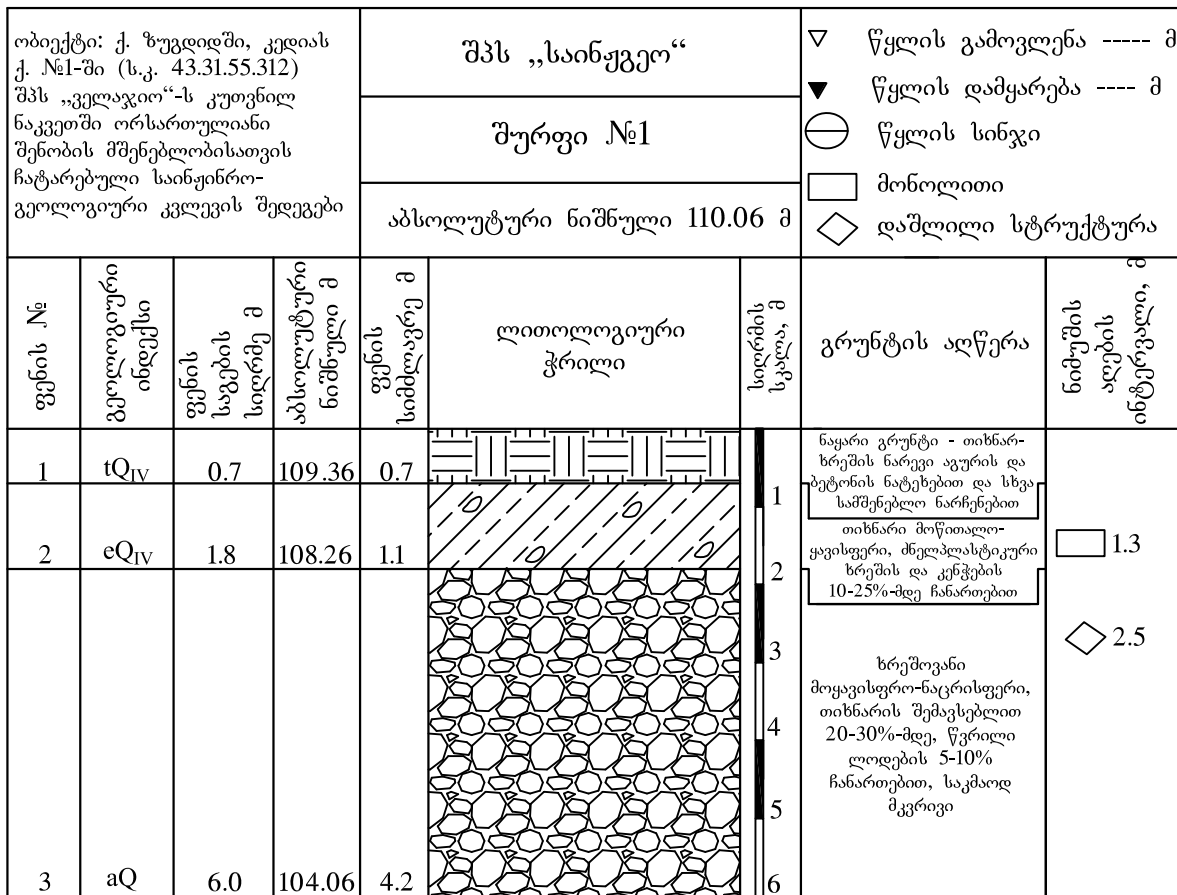 ობიექტი: ქ. ზუგდიდში, კედიას
ქ. №1-ში (ს.კ. 43.31.55.312)
შპს „ველაჯიო“-ს კუთვნილ
ნაკვეთში ორსართულიანი
შენობის მშენებლობისათვის
ჩატარებული საინჟინრო-
გეოლოგიური კვლევის შედეგები
შპს „საინჟგეო“
შურფი №1
აბსოლუტური ნიშნული 110.06 მ
წყლის გამოვლენა ----- მ
წყლის დამყარება ---- მ
წყლის სინჯი
მონოლითი
დაშლილი სტრუქტურა
ფენის №
გეოლოგიური
ინდექსი
ფენის
საგების
სიღრმე მ
აბსოლუტური
ნიშნული მ
ფენის
სიმძლავრე მ
ლითოლოგიური
ჭრილი
სიღრმის
სკალა, მ
გრუნტის აღწერა
ნიმუშის
აღების
ინტერვალი, მ
1 tQIV 0.7 109.36 0.7
ნაყარი გრუნტი - თიხნარ-
ხრეშის ნარევი აგურის და
ბეტონის ნატეხებით და სხვა
სამშენებლო ნარჩენებით
1
2 eQIV 1.8 108.26 1.1
თიხნარი მოწითალო-
ყავისფერი, ძნელპლასტიკური
ხრეშის და კენჭების
10-25%-მდე ჩანართებით
1.3
2
2.5
3
ხრეშოვანი
მოყავისფრო-ნაცრისფერი,
თიხნარის შემავსებლით
20-30%-მდე, წვრილი
ლოდების 5-10%
ჩანართებით, საკმაოდ
მკვრივი
4
5
3 aQ 6.0 104.06 4.2
6